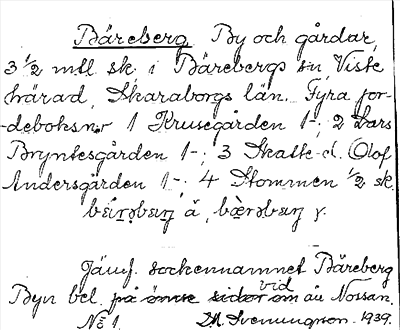 Bäreberg By och gårdar,
3 1/2 mtl sk. i Bärebergs sn, Viste
härad, Skaraborgs län. Fyra jor-
-deboksnr 1 Krusegården 1-; 2 Lars
Bryntesgården 1-; 3 Skatte- el. Olof
Andersgården 1-; 4 Stommen 1/2 sk.
Jämf. sockennamnet Bäreberg
Byn bel. på ömse sidor om vid ån Nossan.
No 1. D. M. Svenungson. 1939.